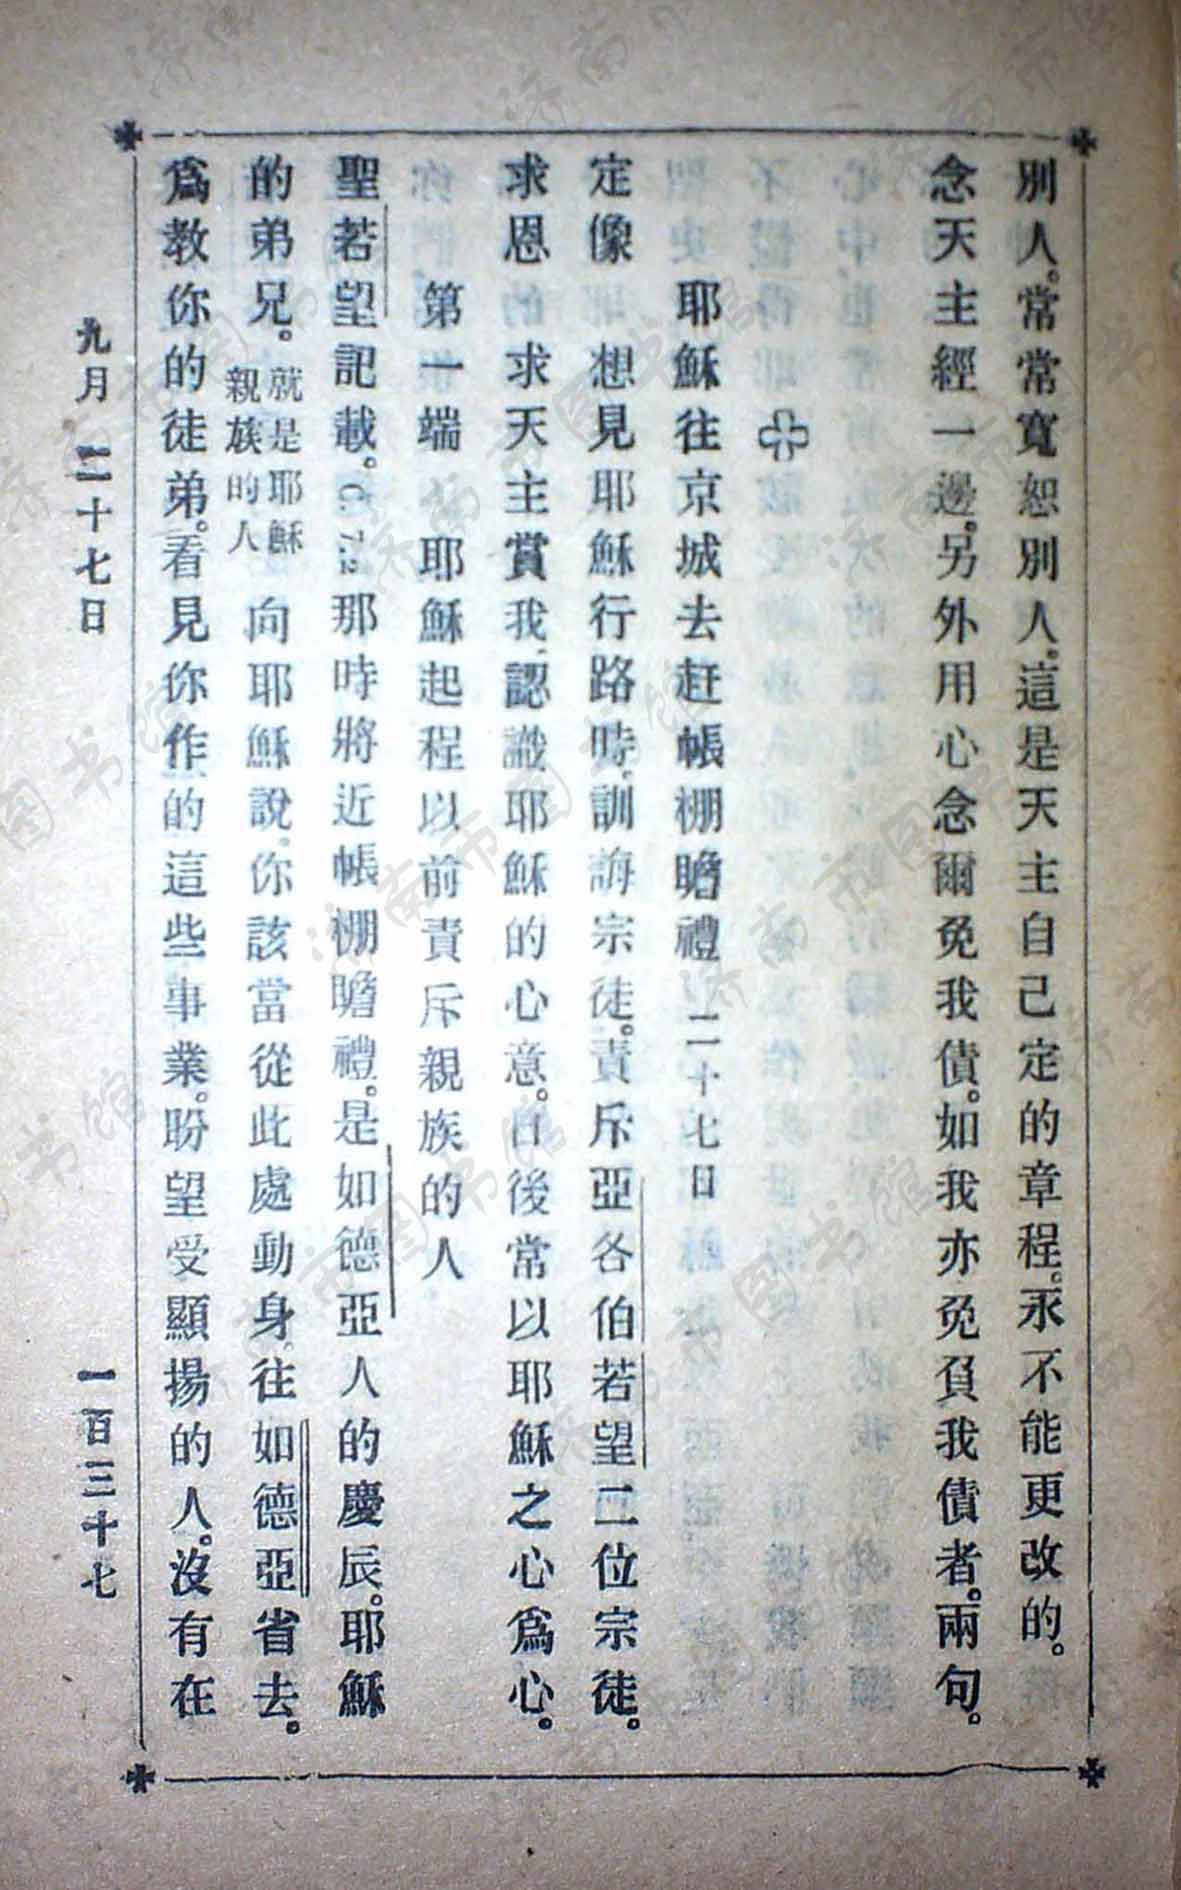 別人。常常寬恕別人。這是天主自己定的章程。永不能更改的。
念天主經一遍。另外用心念爾免我債。如我亦免負我債者。兩句。
耶穌往京城去赶帳棚瞻禮 二十七日
定像 想見耶穌行路時、訓誨宗徒。責斥亞各伯若望二位宗徒。
求恩 求天主賞我、認識耶穌的心意。日後常以耶穌之心爲心。
第一端 耶穌起程以前責斥親族的人
聖若望記載。C. 7. 2. 那時將近帳棚瞻禮。是如德亞人的慶辰。耶穌
的弟兄。就是耶穌親族的人 向耶穌說、你該當從此處動身、往如德亞省去。
爲教你的徒弟。看見你作的這些事業。盼望受顯揚的人。沒有在
九月 二十七日 一百三十七
济南市图书馆